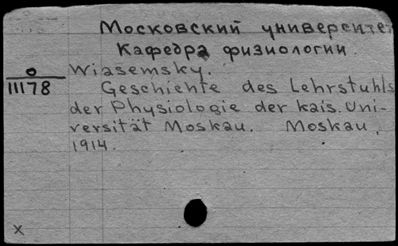 Московский университет
Кафедра физиологии.
Wiasemsky.
o
11178
Geschichte des Lehrstuhls
der Physiologie der kais. Uni-
versität Moskau. Moskau,
1914.
x